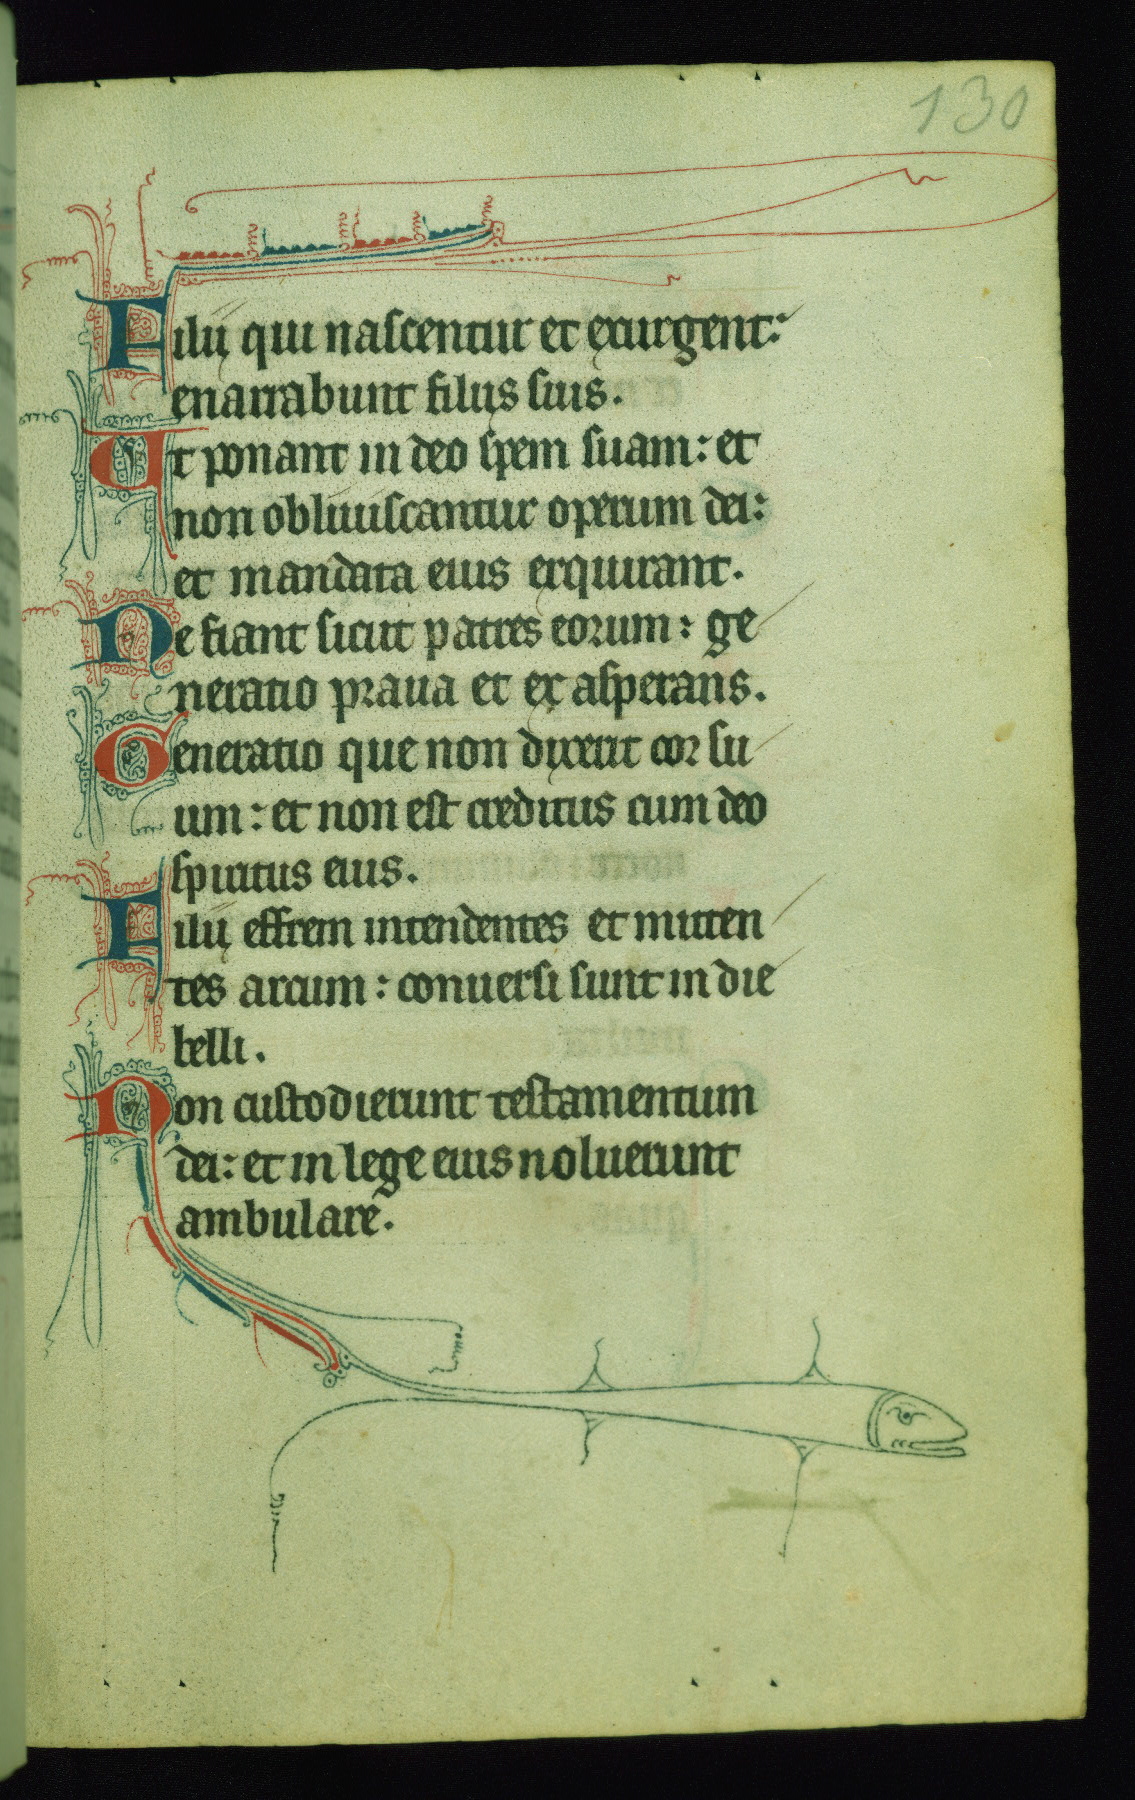 130
Filii qui nascentur et exurgent:
enarrabunt filiis suis.
Ut ponant in deo spem suam: et
non obliuiscantur operum dei:
et mandata eius exquirant.
Ne fiant sicut patres eorum: ge
neratio praua et exasperans.
Generatio que non direxit cor su
um: et non est creditus cum deo
spiritus eius.
Filii effrem intendentes et mitten
tes arcum: conuersi sunt in die
belli.
Non custodierunt testamentum
dei: et in lege eius noluerunt
ambulare.